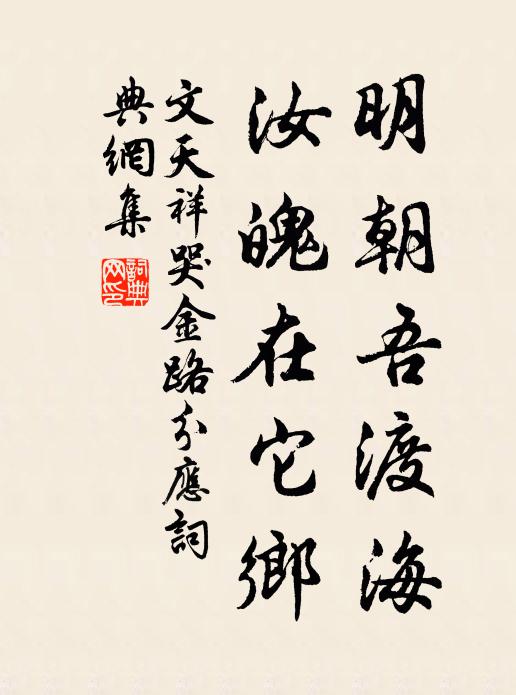 明朝吾渡海
汝魄在它鄉
文天祥哭金路分應詞
典網集
詞典網印